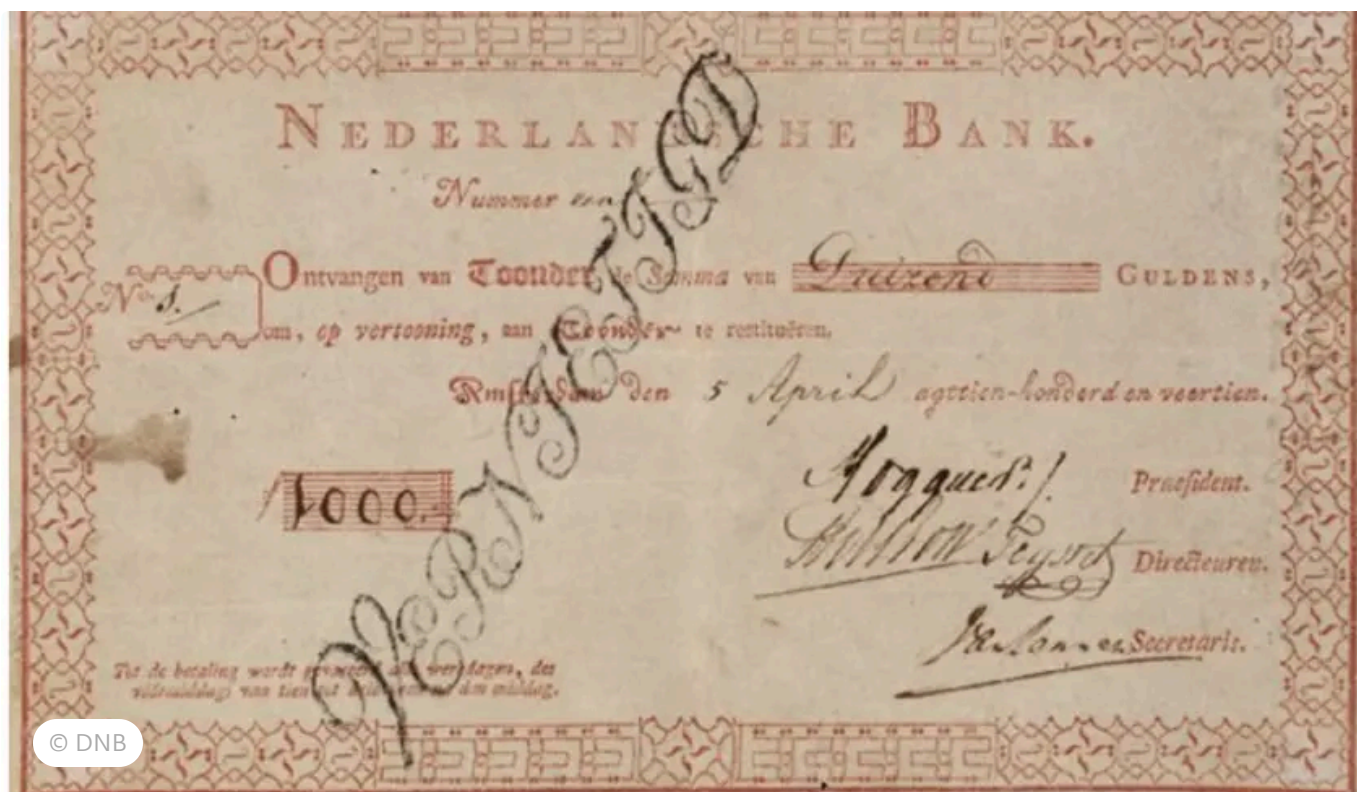 NEDERLANDSCHE BANK.
Nummer een
Ontvangen van Toonder, de Somma van Duizend GULDENS,
N.o 1.
om, op vertooning, aan Toonder te restitueren.
Amsterdam den 5 April agttien-honderd en veertien.
1000.
Hogguer Præsident.
Teysset Directeuren.
Secretaris.
Tot de betaling wordt alle werkdagen, des
voormiddags van tien tot den middag.
VERNIETIGD
© DNB